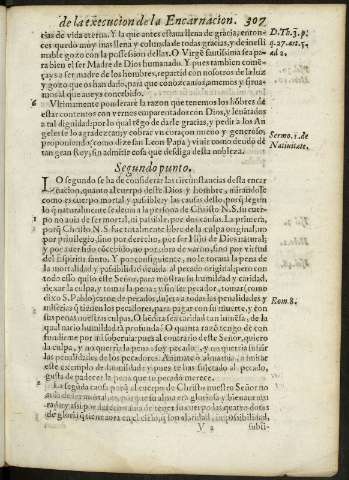 de la execucion de la Encarnacion. 307
rias de vida eterna. Y la que antes estaua llena de gracia, enton-
ces quedò muy mas llena y colmada de todas gracias, y de inesti
mable gozo con la possession dellas. O Virgē santissima sea pa
ra bien el ser Madre de Dios humanado. Y pues tambien comē-
çays a ser madre de los hombres, repartid con nosotros de la luz
y gozo que os han dado, para que conozcamos, amemos y siruamos
al que aueys concebido.
D. Th. 3. p.
q. 27. art. 5.
ad 2.
6 Vltimamente ponderarè la razon que tenemos los hōbres de
estar contentos con vernos emparentados con Dios, y leuātados
a tal dignidad: por lo qual tēgo de darle gracias, y pedir a los An
geles se lo agradezcan; y cobrar vn coraçon nueuo y generoso,
proponiendo, como dize san Leon Papa, viuir como deudo de
tan gran Rey, sin admitir cosa que desdiga desta nobleza.
Sermo. 1. de
Natiuitate.
Segundo punto.
LO segundo se ha de considerar las circunstancias desta encar
nacion, quanto al cuerpo deste Dios y hombre, mirandole
como es cuerpo mortal y passible y las causas dello, porq̄ segun
lo q̄ naturalmente se deuia a la persona de Christo N. S. su cuer-
1 po no auia de ser mortal, ni passible, por dos causas. La primera,
porq̄ Christo N. S. fue totalmente libre de la culpa original, no
por priuilegio, sino por derecho, por ser Hijo de Dios natural;
y por auer sido concebido, no por obra de varon, sino por virtud
del Espiritu santo. Y por consiguiente, no le tocaua la pena de
la mortalidad y passibilidad deuida al pecado original; pero con
todo esso quiso este Señor, para mostrar su humildad y caridad,
dexar la culpa, y tomar la pena: y sin ser pecador, tomar (como
dixo S. Pablo) carne de pecados, sujeta a todas las penalidades y
miserias q̄ tienen los pecadores, para pagar con su muerte, y con
sus penas nuestras culpas. O bēdita sea caridad tan inmensa, de la
qual nacio humildad tā profunda! O quanta razō tengo de con
fundirme por mi soberuia; pues al contrario deste Señor, quiero
la culpa, y no querria la pena: soy pecador, y no querria sufrir
las penalidades de los pecadores. Animate ò alma mia, a imitar
este exemplo de humildad: y pues te has sujetado al pecado,
gusta de padecer la pena que tu pecado merece.
Rom. 8.
2 La segunda causa porq̄ al cuerpo de Christo nuestro Señor no
auia de ser mortal, es, porque su alma era gloriosa y bienauentu
rada; y assi por
V 2
subti-